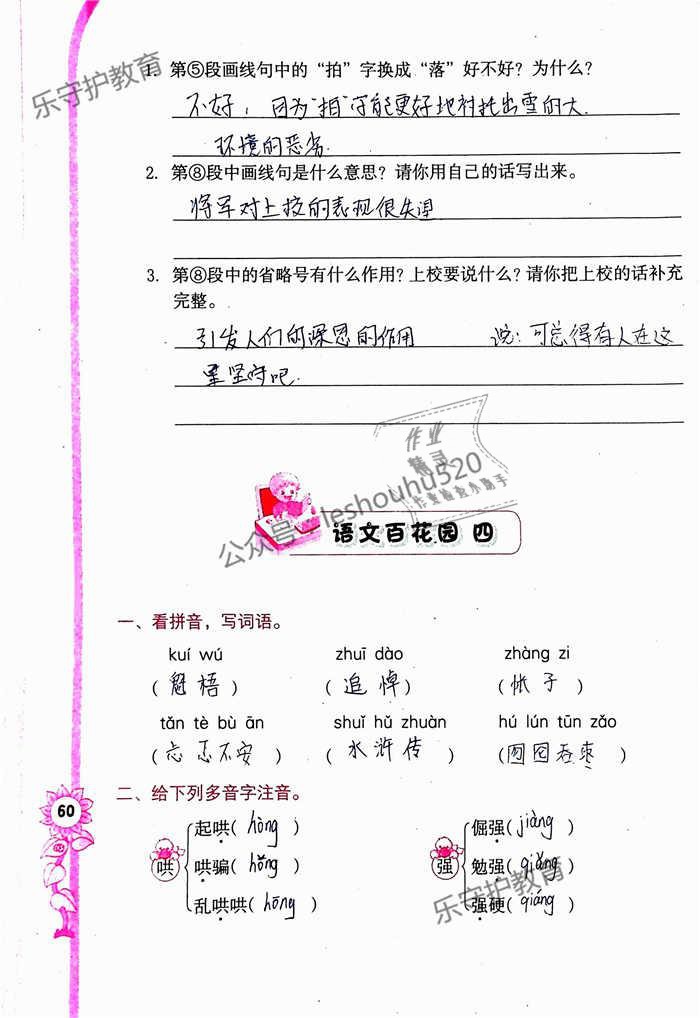 乐守护教育
1. 第⑤段画线句中的“拍”字换成“落”好不好？为什么？
不好，因为“拍”字能更好地衬托出雪的大.
环境的恶劣.
2. 第⑧段中画线句是什么意思？请你用自己的话写出来。
将军对上校的表现很失望
3. 第⑧段中的省略号有什么作用？上校要说什么？请你把上校的话补充
完整。
引发人们的深思的作用 说：可总得有人在这
里坚守吧.
作业
精灵
作业检查小助手
公众号：leshouhu520
语文百花园 四
一、看拼音，写词语。
kuí wú zhuī dào zhàng zi
（魁梧）（追悼）（帐子）
tǎn tè bù ān shuǐ hǔ zhuàn hú lún tūn zǎo
（忐忑不安）（水浒传）（囫囵吞枣）
二、给下列多音字注音。
60
哄 起哄（hòng） 强 倔强（jiàng）
哄骗（hǒng） 勉强（qiǎng）
乱哄哄（hōng） 强硬（qiáng）
乐守护教育